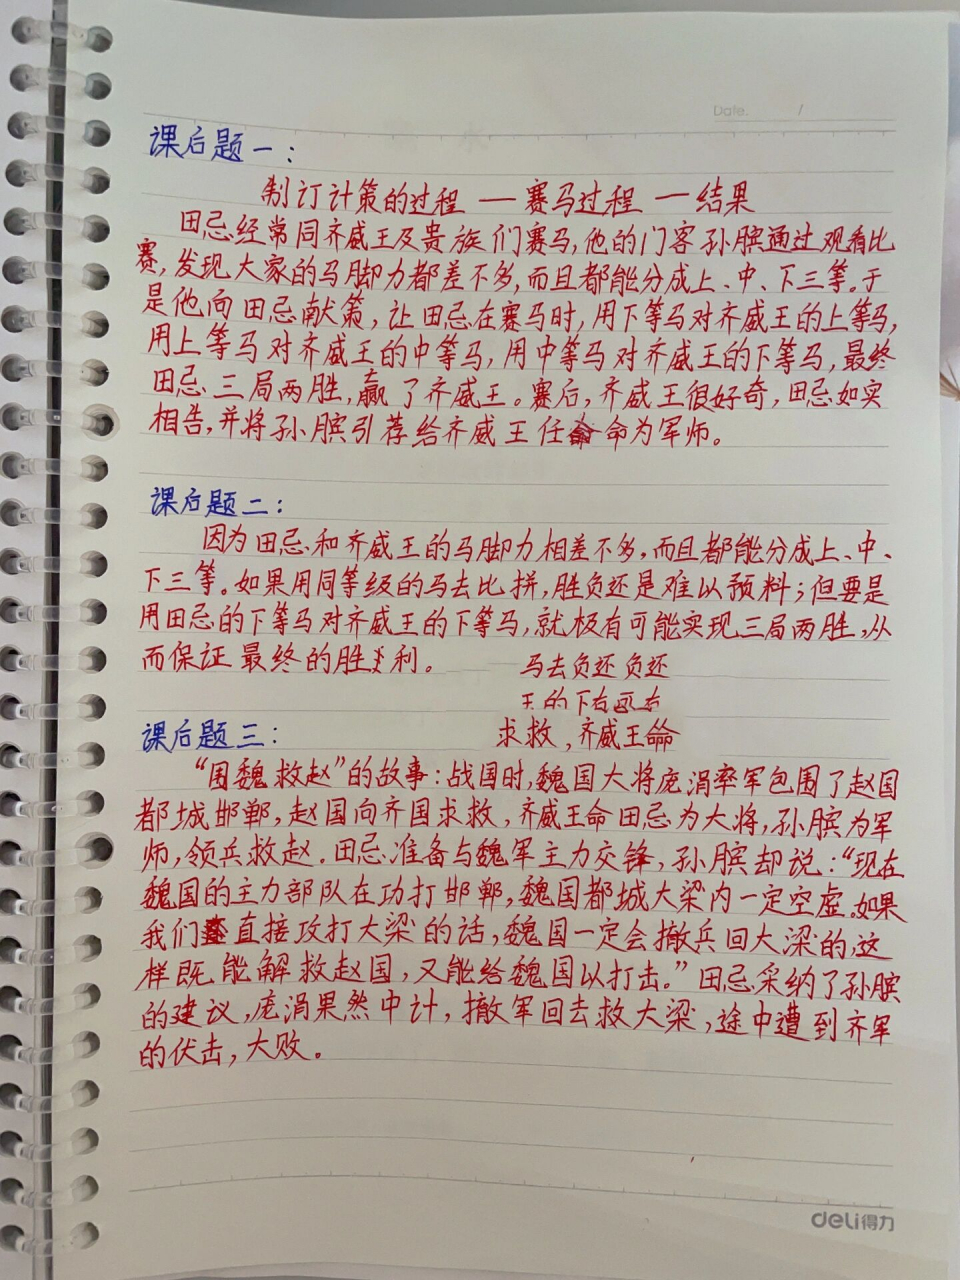 Date. /
课后题一：
制订计策的过程 — 赛马过程 — 结果
田忌经常同齐威王及贵族们赛马，他的门客孙膑通过观看比
赛，发现大家的马脚力都差不多，而且都能分成上、中、下三等。于
是他向田忌献策，让田忌在赛马时，用下等马对齐威王的上等马，
用上等马对齐威王的中等马，用中等马对齐威王的下等马，最终
田忌三局两胜，赢了齐威王。赛后，齐威王很好奇，田忌如实
相告，并将孙膑引荐给齐威王任命为军师。
课后题二：
因为田忌和齐威王的马脚力相差不多，而且都能分成上、中、
下三等。如果用同等级的马去比拼，胜负还是难以预料；但要是
用田忌的下等马对齐威王的下等马，就极有可能实现三局两胜，从
而保证最终的胜利。
马去负还负还
王的下
求救，齐威王命
课后题三：
“围魏救赵”的故事：战国时，魏国大将庞涓率军包围了赵国
都城邯郸，赵国向齐国求救，齐威王命田忌为大将，孙膑为军
师，领兵救赵。田忌准备与魏军主力交锋，孙膑却说：“现在
魏国的主力部队在功打邯郸，魏国都城大梁内一定空虚。如果
我们直接攻打大梁的话，魏国一定会撤兵回大梁的，这
样既能解救赵国，又能给魏国以打击。”田忌采纳了孙膑
的建议，庞涓果然中计，撤军回去救大梁，途中遭到齐军
的伏击，大败。
deli得力